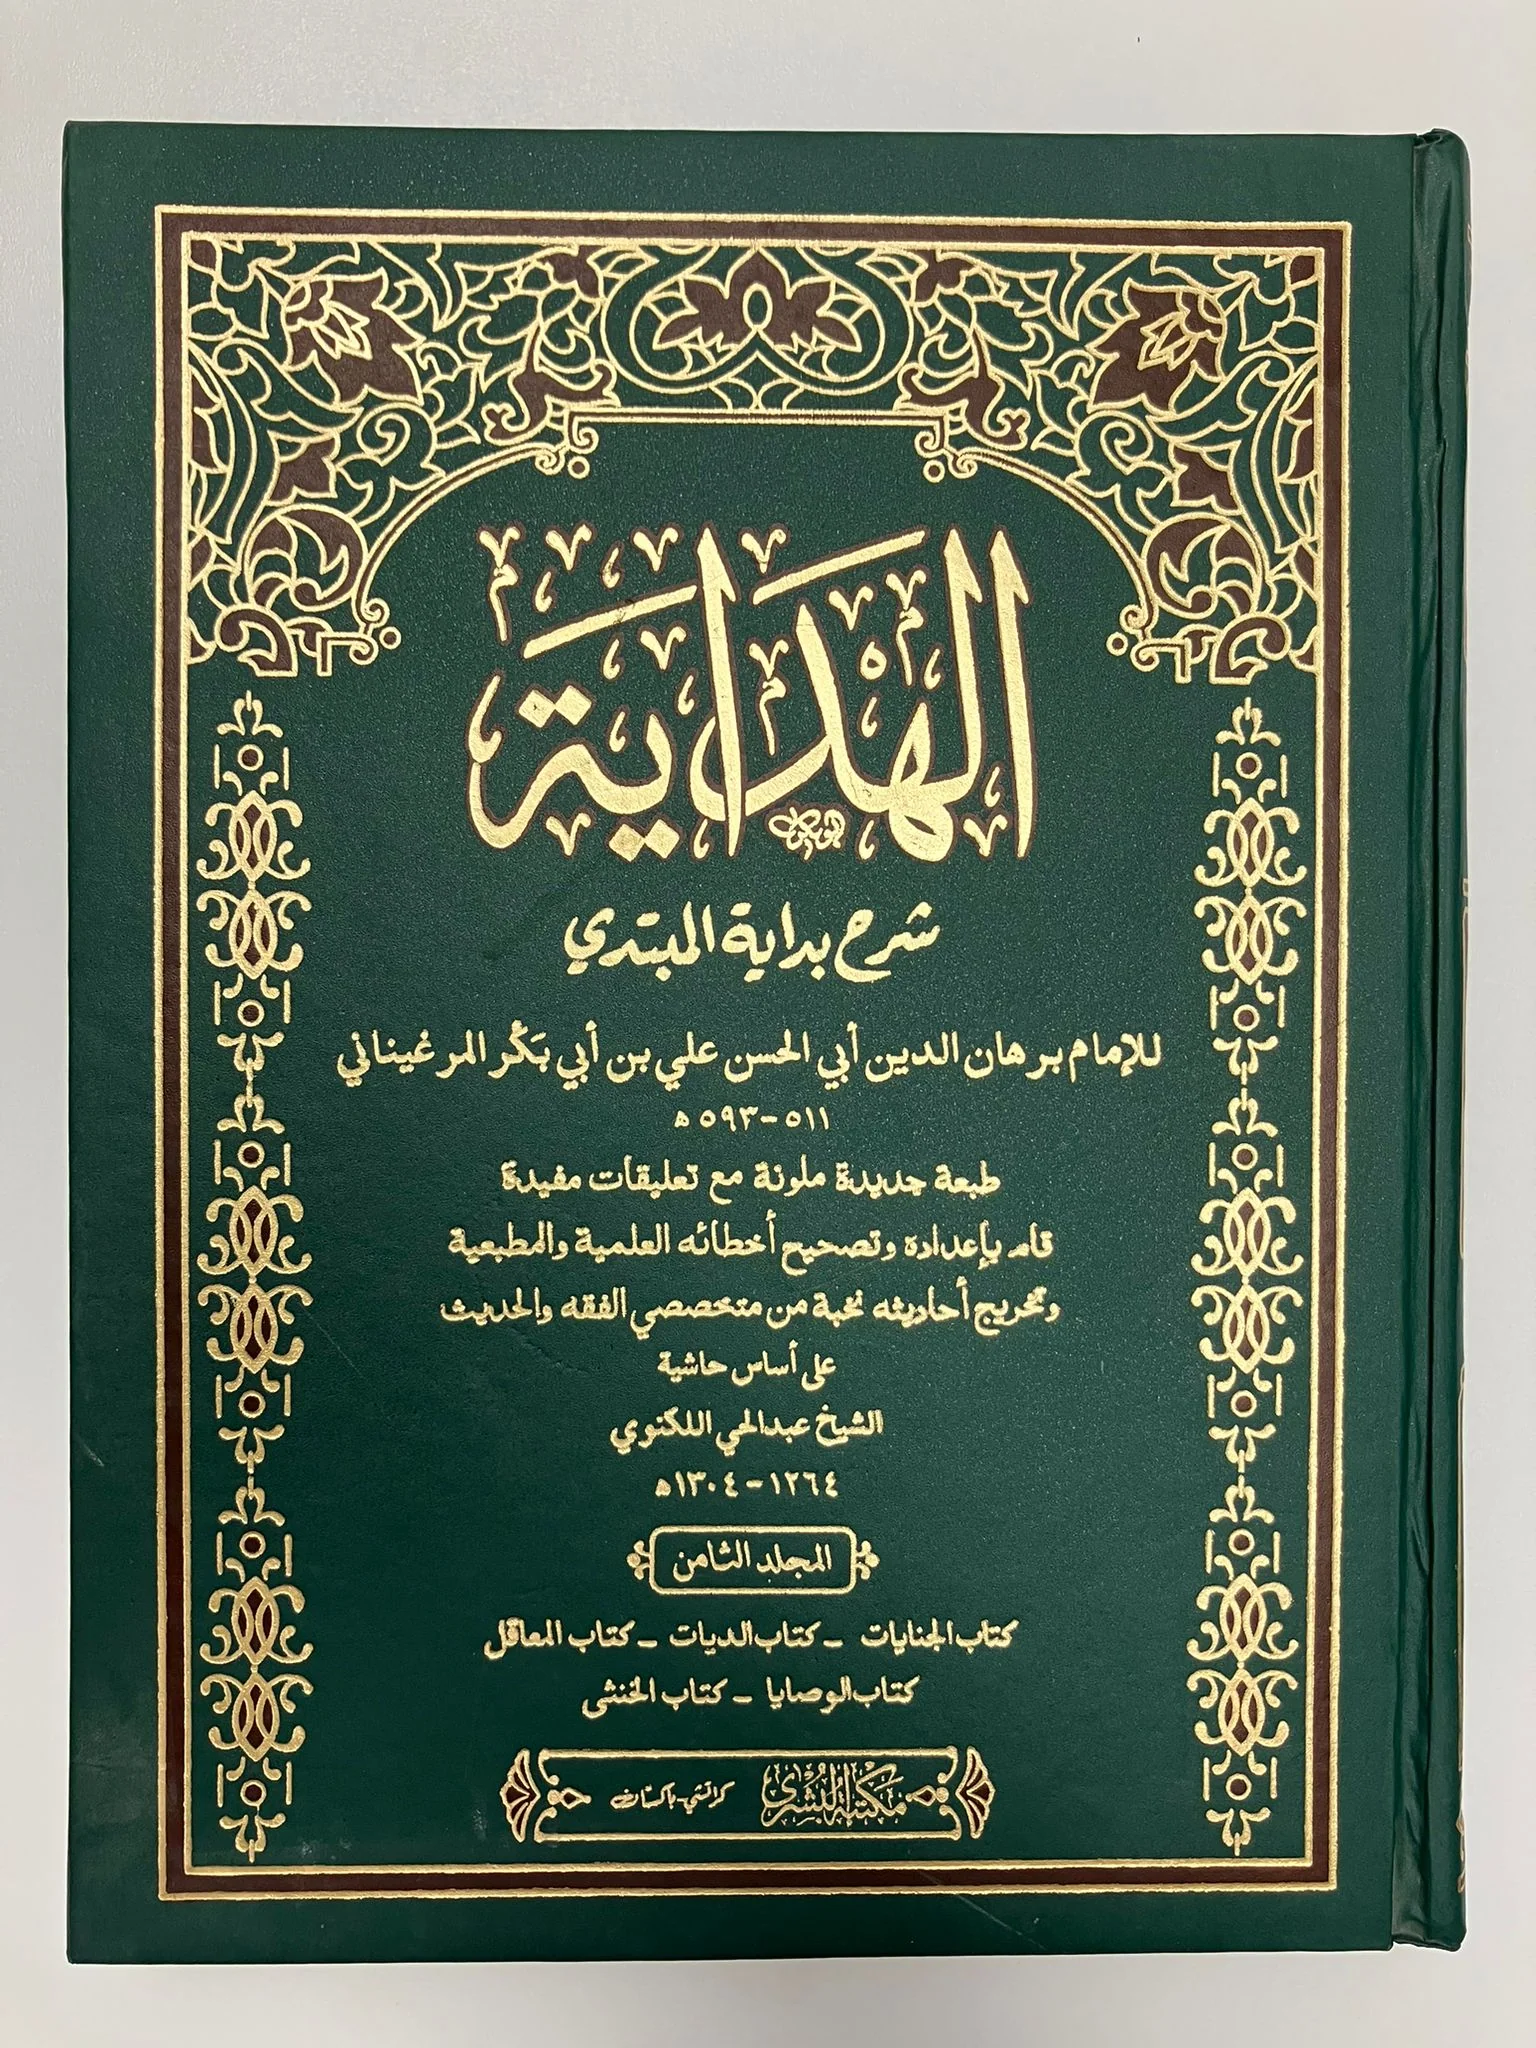 الهداية
شرح بداية المبتدي
للإمام برهان الدين أبي الحسن علي بن أبي بَكْر المرغيناني
٥١١-٥٩٣ ه
طبعة جديدة ملونة مع تعليقات مفيدة
قام بإعداده وتصحيح أخطائه العلمية والمطبعية
وتخريج أحاديثه نخبة من متخصصي الفقه والحديث
على أساس حاشية
الشيخ عبدالحي اللكنوي
١٢٦٤-١٣٠٤ه
المجلد الثامن
كتاب الجنايات - كتاب الديات - كتاب المعاقل
كتاب الوصايا - كتاب الخنثى
مكتبة البشرى كراتشي-باكستان